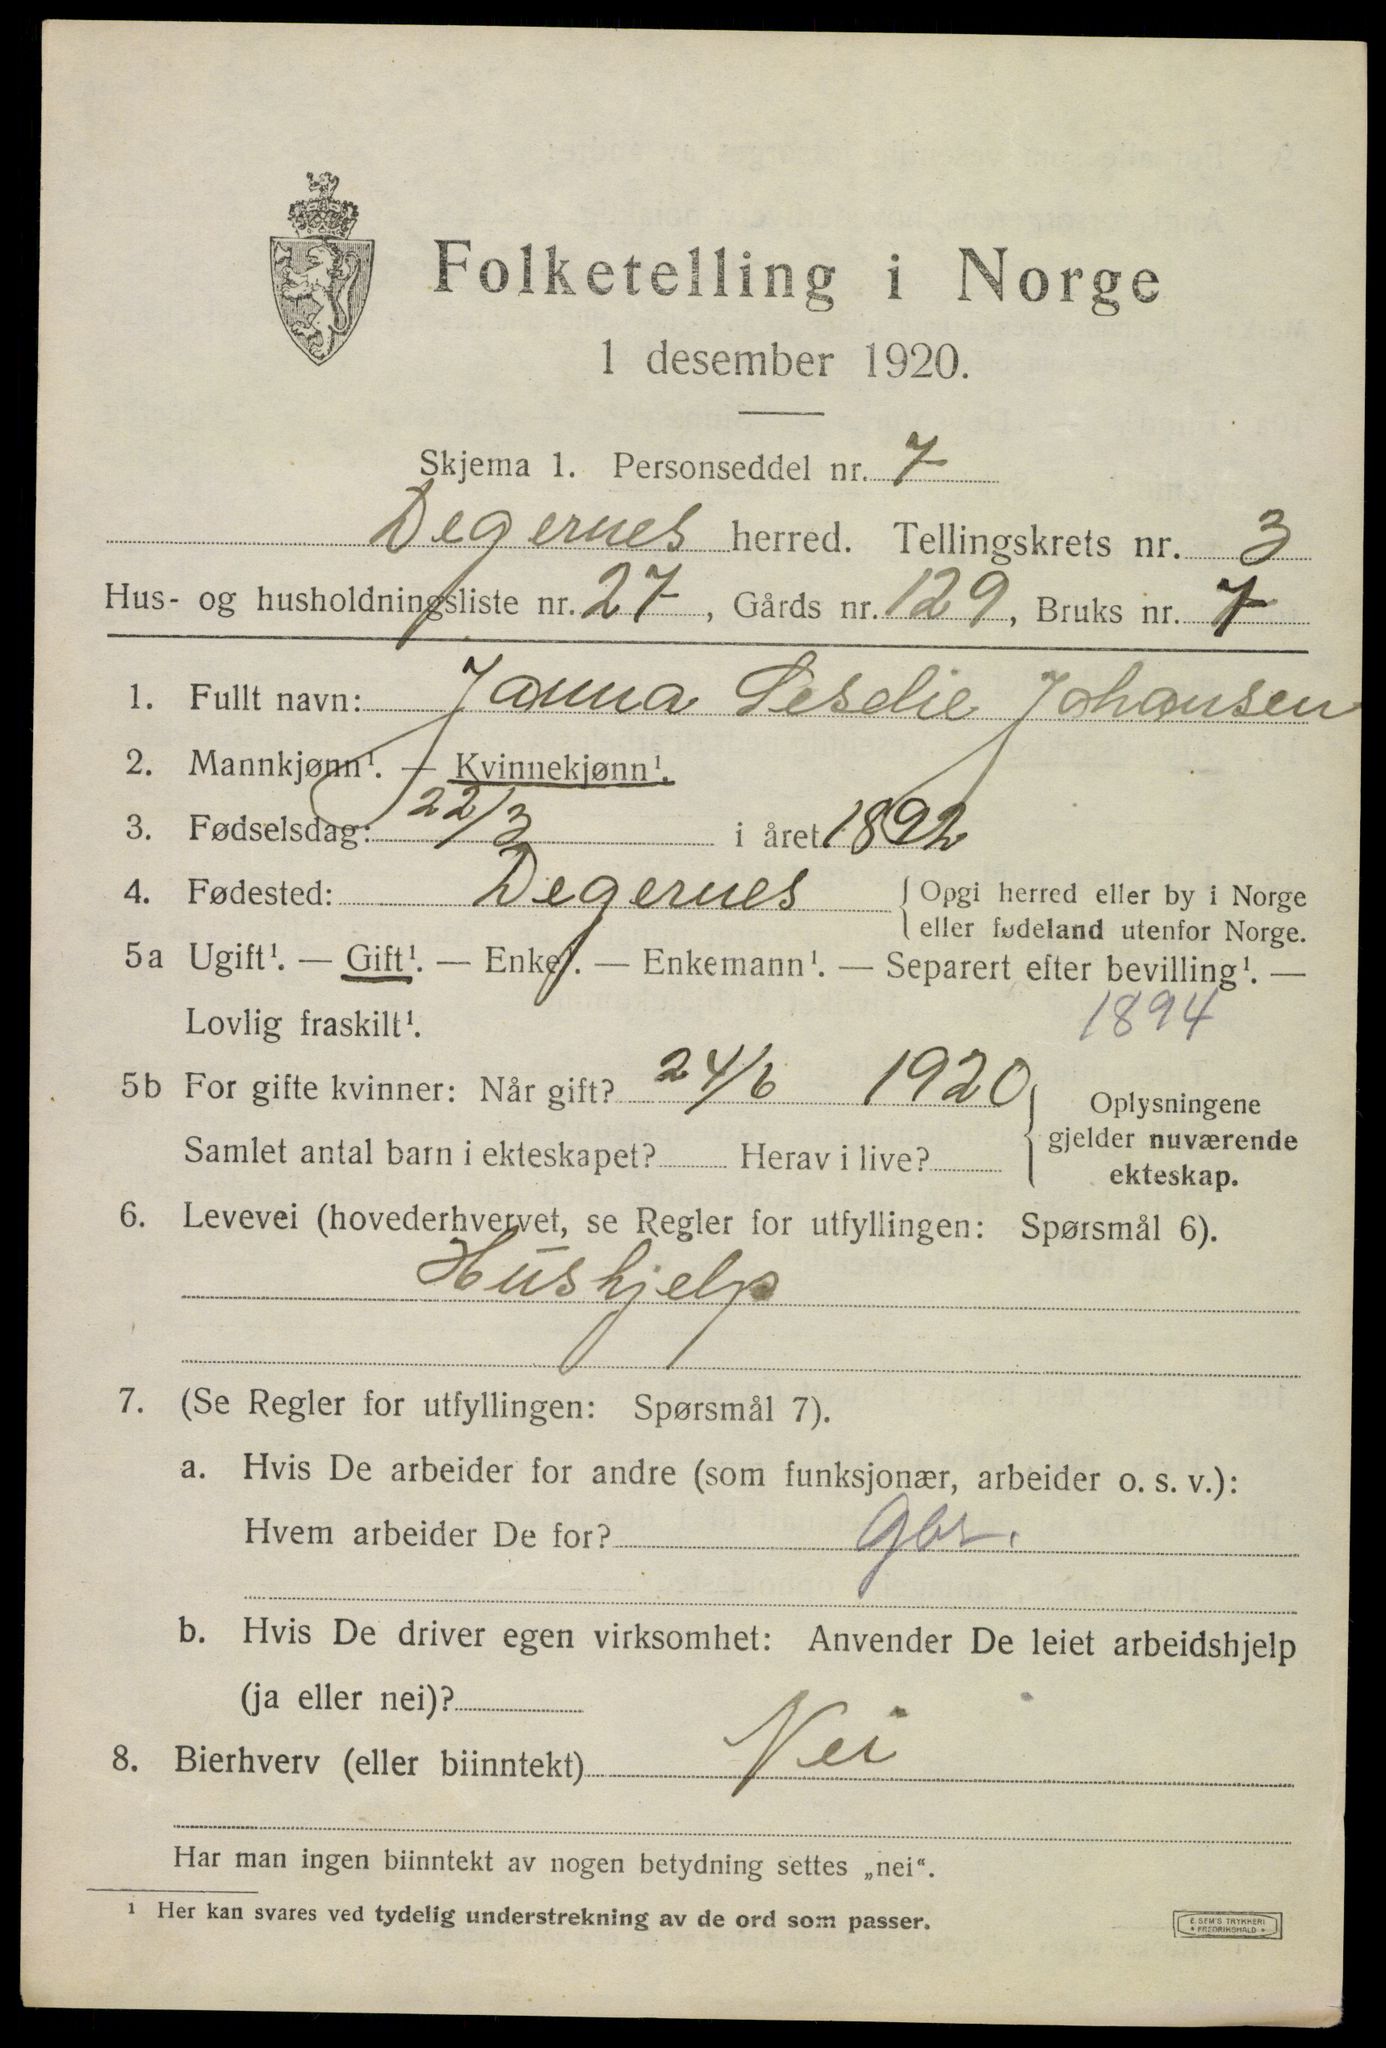 Folketelling i Norge
1 desember 1920.
Skjema 1. Personseddel nr. 7
Degernes herred. Tellingskrets nr. 3
Hus- og husholdningsliste nr. 27, Gårds nr. 129, Bruks nr. 7
1. Fullt navn: Janna Johansen
2. Mannkjønn¹. — Kvinnekjønn¹.
3. Fødselsdag: 22/3 i året 1892
4. Fødested: Degernes { Opgi herred eller by i Norge
eller fødeland utenfor Norge.
5a Ugift¹. — Gift¹. — Enke¹. — Enkemann¹. — Separert efter bevilling¹. —
Lovlig fraskilt¹. 1894
5b For gifte kvinner: Når gift? 24/6 1920 { Oplysningene
gjelder nuværende
ekteskap.
Samlet antal barn i ekteskapet? Herav i live?
6. Levevei (hovederhvervet, se Regler for utfyllingen: Spørsmål 6).
Hushjelp
7. (Se Regler for utfyllingen: Spørsmål 7).
a. Hvis De arbeider for andre (som funksjonær, arbeider o. s. v.):
Hvem arbeider De for? gbr.
b. Hvis De driver egen virksomhet: Anvender De leiet arbeidshjelp
(ja eller nei)?
8. Bierhverv (eller biinntekt) Nei
Har man ingen biinntekt av nogen betydning settes „nei“.
¹ Her kan svares ved tydelig understrekning av de ord som passer.
E. SEM'S TRYKKERI
FREDRIKSHALD